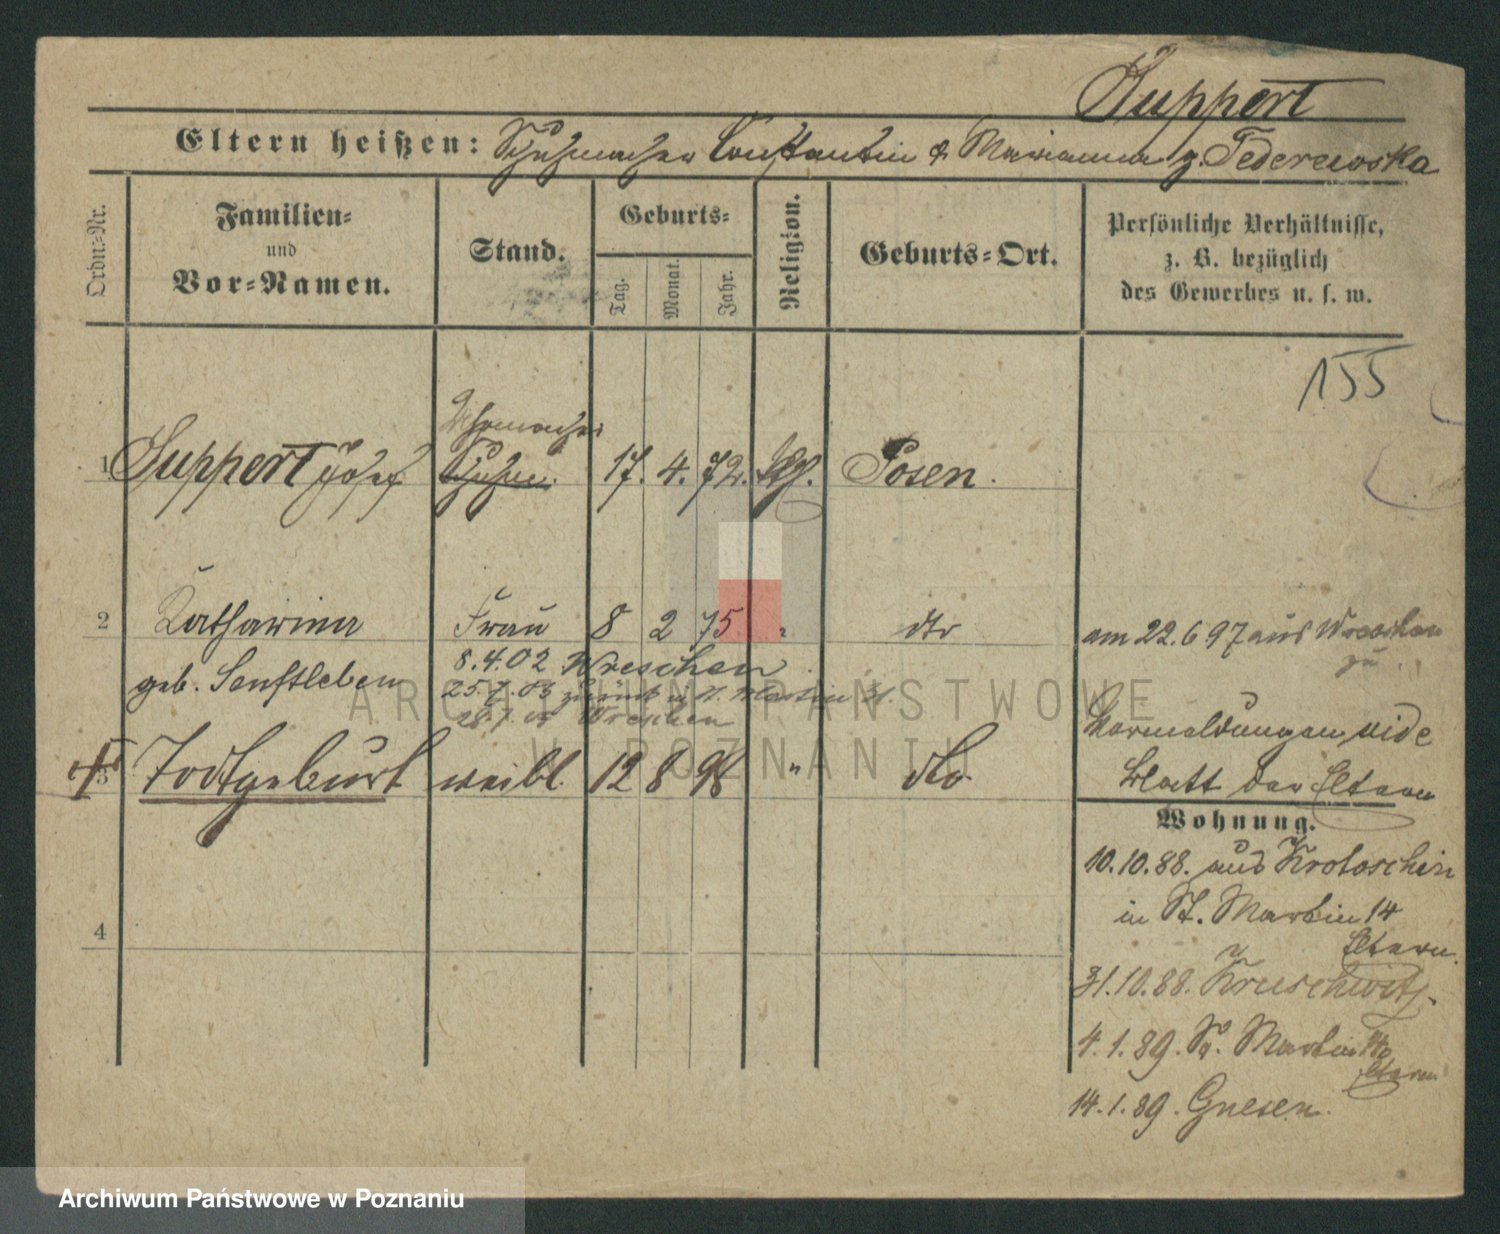 Suppert
Eltern heißen: Schuhmacher Constantin & Marianna g. Federewska
Ordn:-Nr.
Familien-
und
Vor-Namen.
Stand.
Geburts-
Tag.
Monat.
Jahr.
Religion.
Geburts-Ort.
Persönliche Verhältnisse,
z. B. bezüglich
des Gewerbes u. s. w.
155
Uhrmacher
1 Suppert Josef Schuhm. 17. 4. 72. kth. Posen.
2 Katharina Frau 8 2 75 " dto am 22.6 97 aus Wreschen
zu
geb. Senftleben 8.4.02 Wreschen
25.7.03 zurück n. St. Martin 31.
28.7.03 Wreschen
Vermeldungen vide
3 Todtgeburt weibl. 12 8 98 " dto. Blatt der Eltern
Wohnung.
10.10.88. aus Krotoschin
in St. Martin 14
Eltern.
4
31.10.88. Kruschwitz.
4.1.89. St. Martin 14
Eltern
14.1.89. Gnesen.
ARCHIWUM PAŃSTWOWE
W POZNANIU
Archiwum Państwowe w Poznaniu